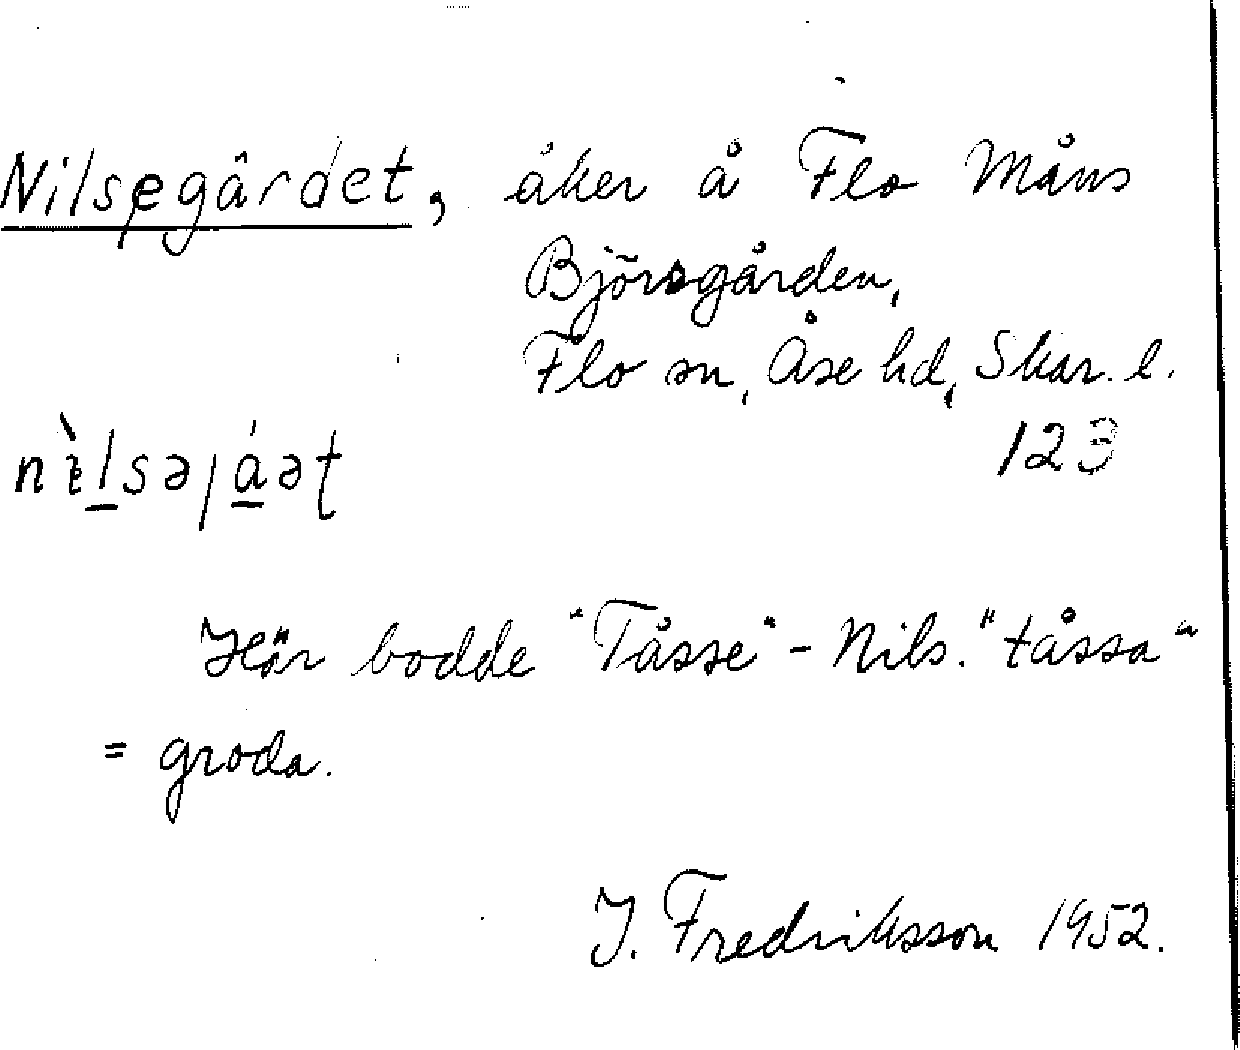 Nilsegärdet, åker å Flo Måns
Björsgården,
Flo sn, Åse hd, Skar. l.
123
Här bodde "Tåsse"-Nils. "tåssa"
= groda.
J. Fredriksson 1952.